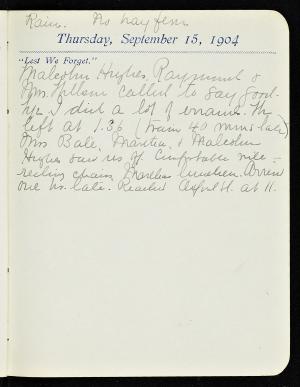 Rain. No hay fever
Thursday, September 15, 1904
"Lest We Forget."
Malcolm Hughes, Raymund &
Mrs. called to say good-
bye. I did a lot of errands. We
left at 1.36 (train 40 mins late)
Mrs Bale, Martha, & Malcolm
Hughes saw us off. Comfortable ride -
reclining chairs, luncheon. Arrived
one hr. late. Reached at 11.